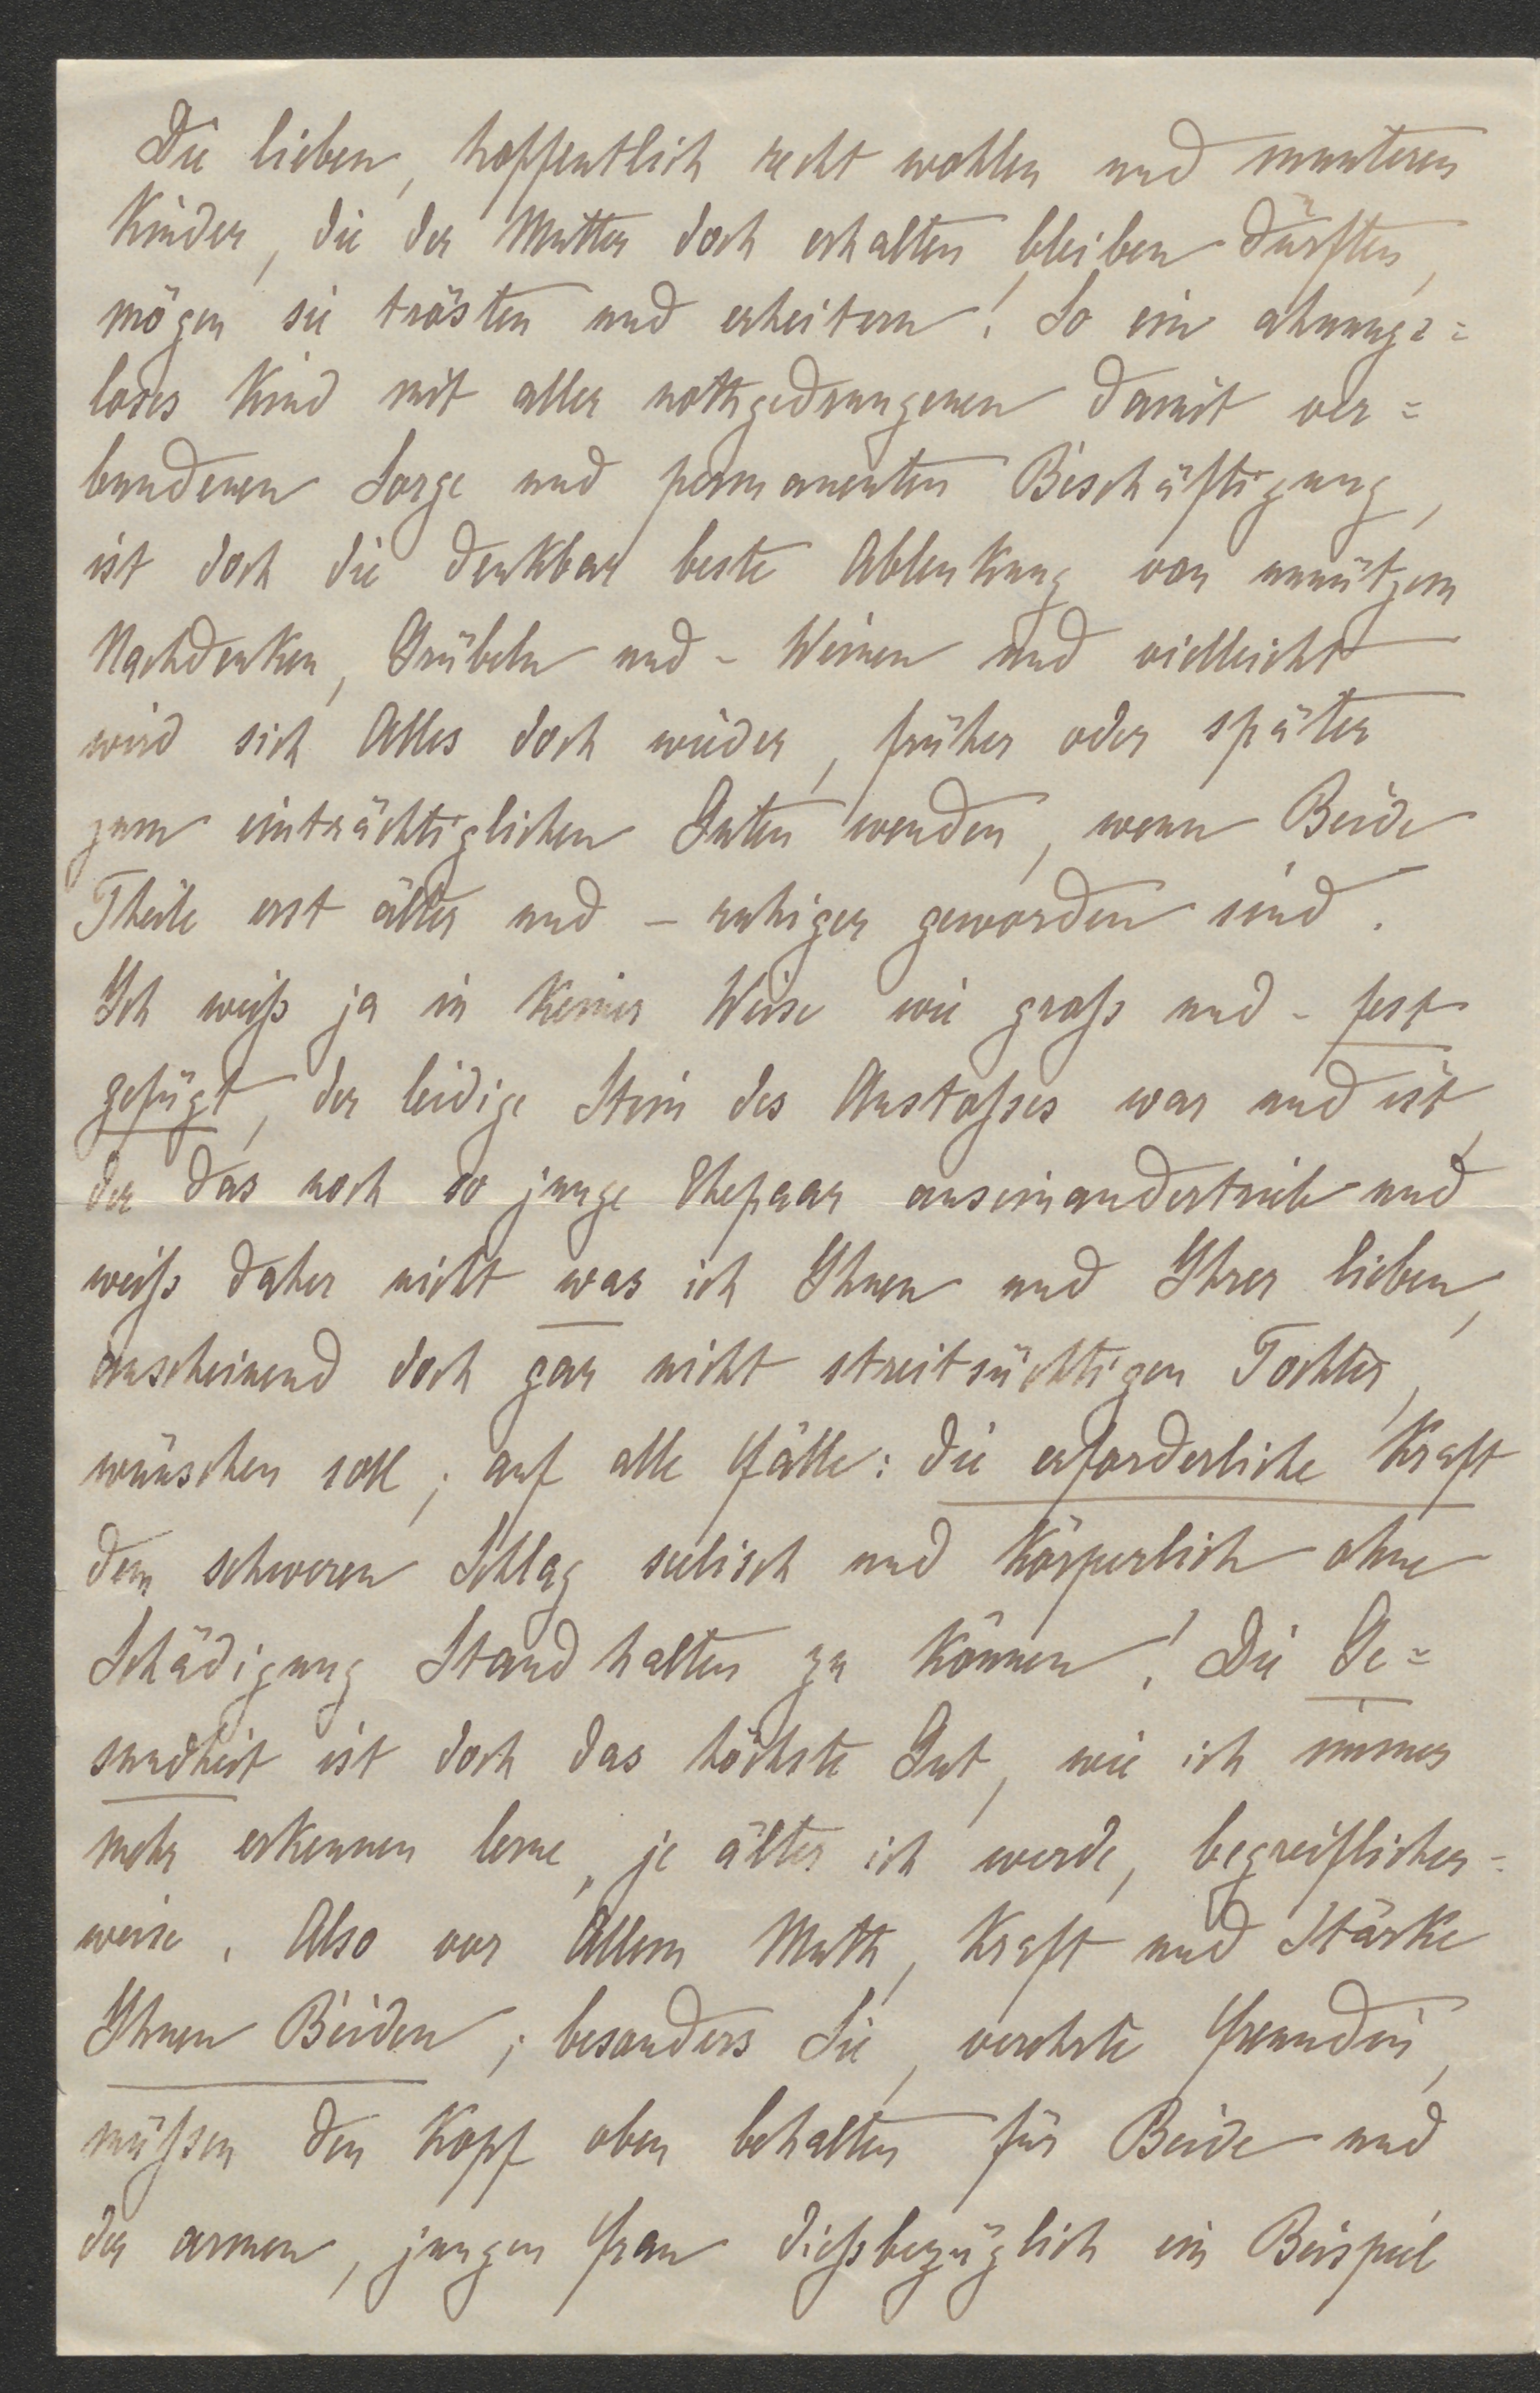 Die lieben, hoffentlich recht wohlen und munteren
Kinder, die der Mutter doch erhalten bleiben dürften,
mögen sie trösten und erheitern! So ein ahnungs=
loses Kind mit aller nothgedrungenen damit ver=
bundenen Sorge und permanenten Beschäftigung,
ist doch die denkbar beste Ablenkung von unnützem
Nachdenken, Grübeln und - Weinen und vielleicht
wird sich Alles doch wieder, früher oder später
zum einträchtiglichen Guten wenden, wenn Beide
Theile erst älter und - ruhiger geworden sind.
Ich weiß ja in keiner Weise wie groß und - fest
gefügt, der leidige Stein des Anstoßses war und ist,
der das noch so junge Ehepaar auseinandertrieb und
weiß daher nicht was ich Ihnen und Ihrer lieben,
anscheinend doch gar nicht streitsüchtigen Tochter,
wünschen soll; auf alle Fälle: die erforderliche Kraft
dem schweren Schlag seelisch und körperlich ohne
Schädigung Stand halten zu können! Die Ge=
sundheit ist doch das höchste Gut, wie ich immer
mehr erkennen lerne, je älter ich werde, begreiflicher-
weise. Also vor Allem Muth, Kraft und Stärke
Ihnen Beiden; besonders Sie, verehrte Freundin,
müßsen den Kopf oben behalten für Beide und
der armen, jungen Frau dießbezüglich ein Beispiel